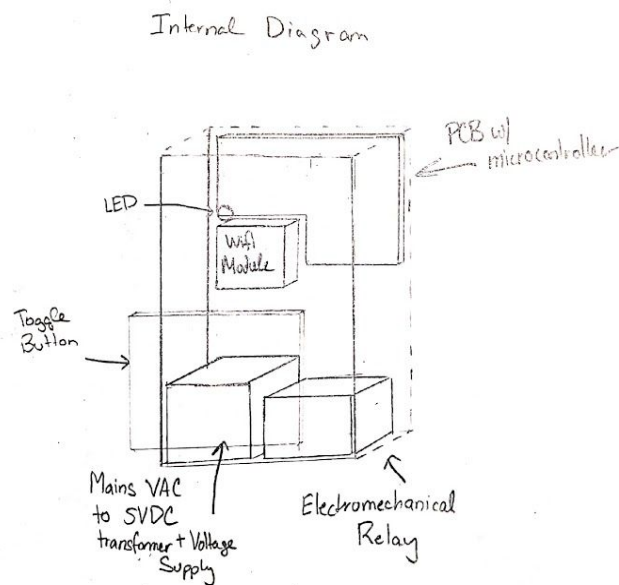 Internal Diagram
PCB w/
microcontroller
LED
Wifi
Module
Toggle
Button
Mains VAC
to 5VDC
transformer + Voltage
Supply
Electromechanical
Relay